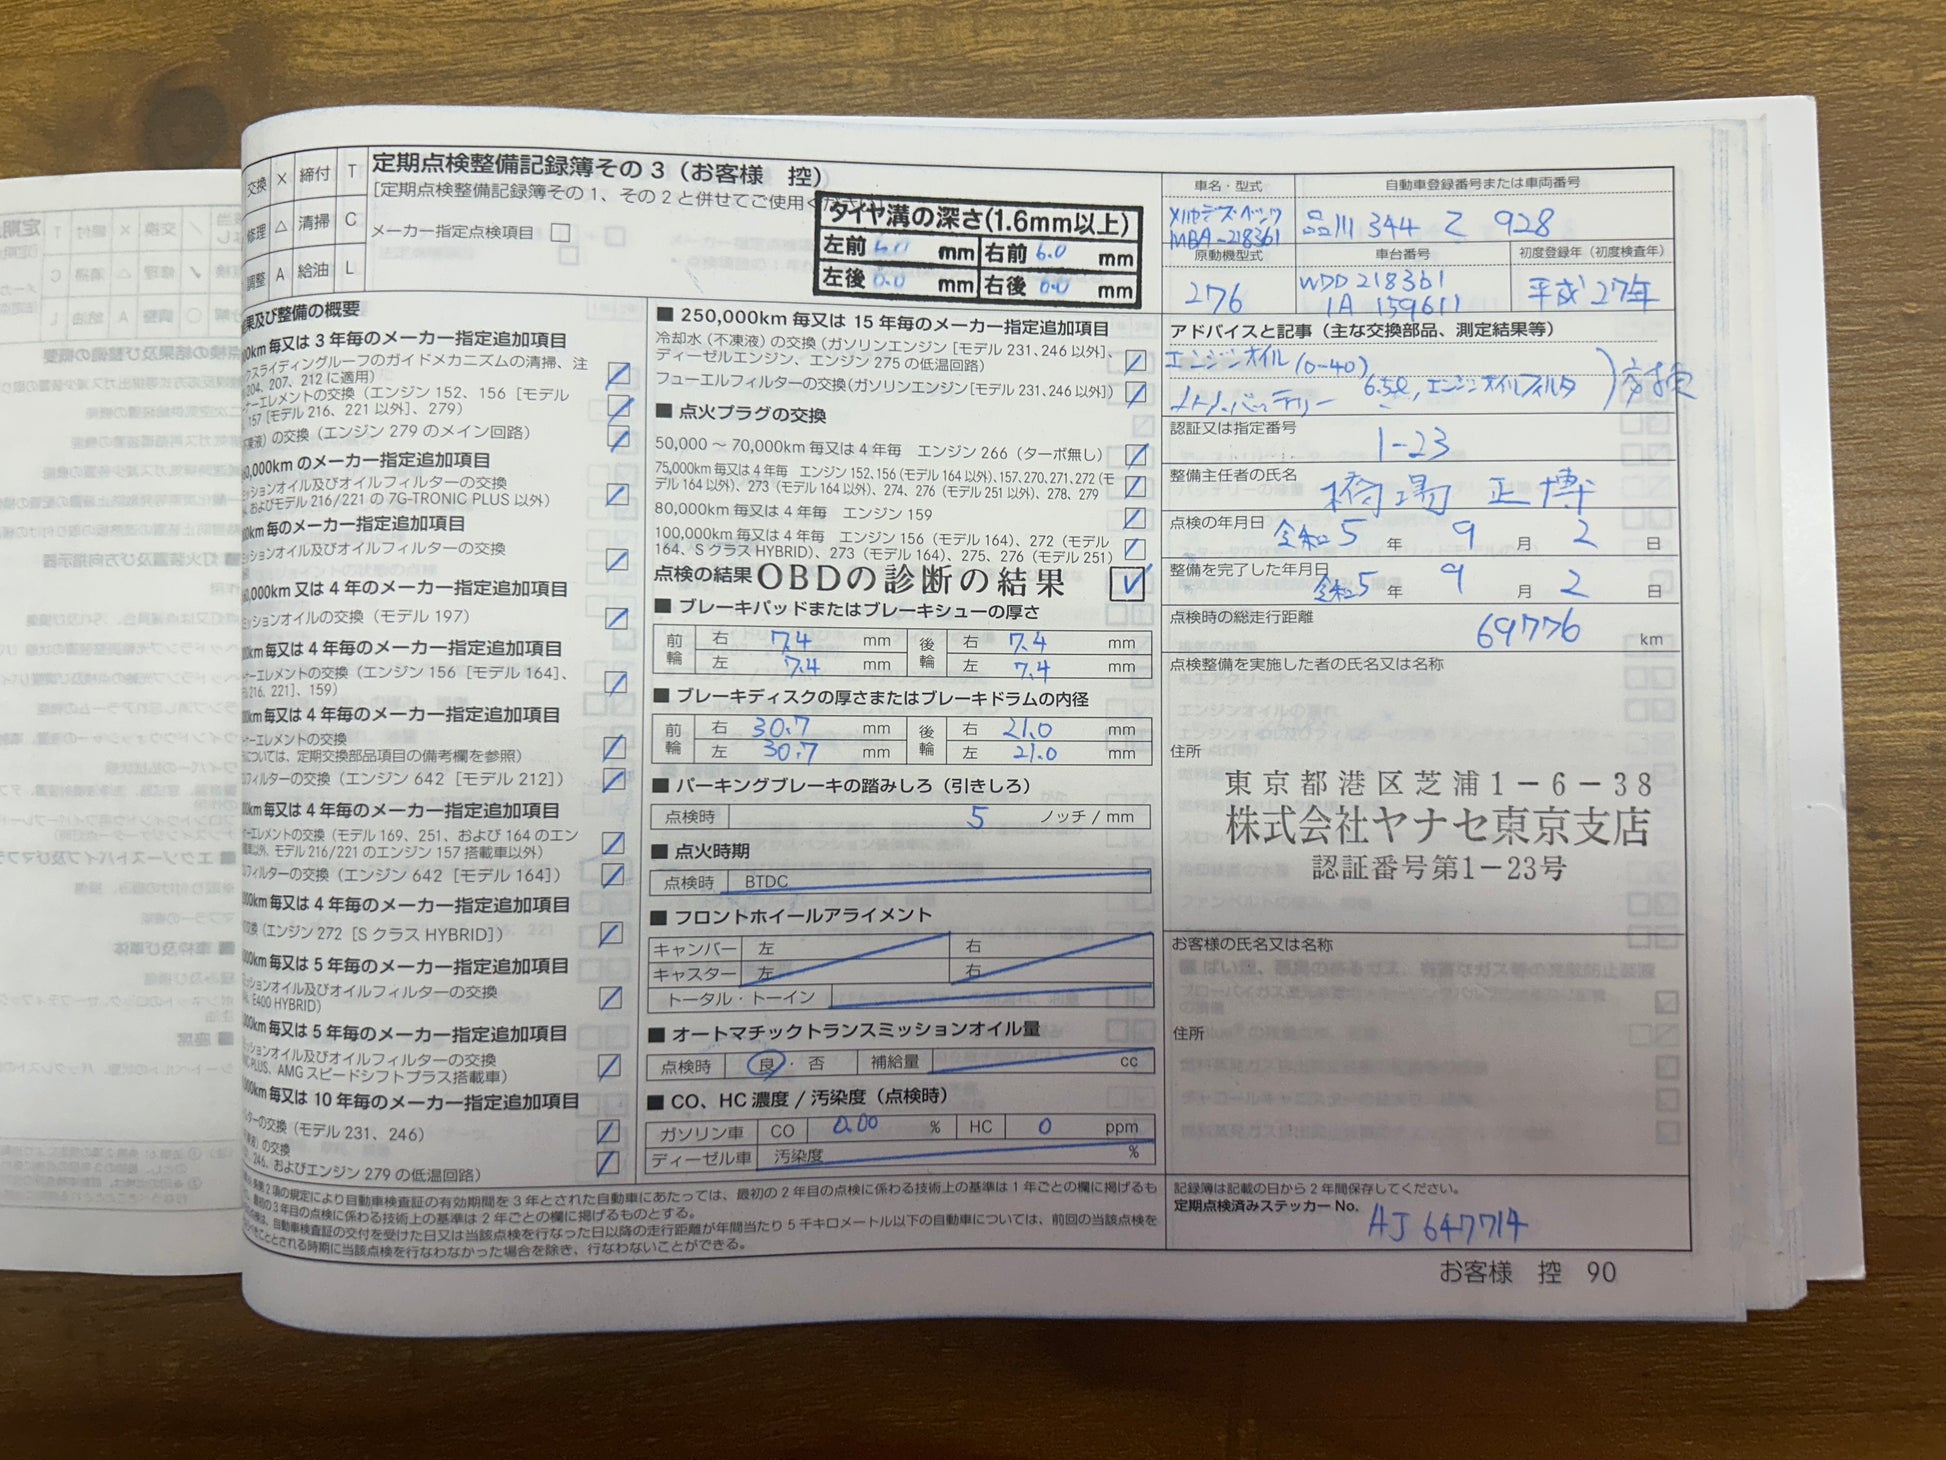 定期点検整備記録簿その3（お客様　控）
[定期点検整備記録簿その1、その2と併せてご使用く
交換 × 締付 T
修理 △ 清掃 C
調整 A 給油 L
メーカー指定点検項目 □
タイヤ溝の深さ(1.6mm以上)
左前 6.0 mm 右前 6.0 mm
左後 mm 右後 mm
車名・型式
メルセデス・ベンツ
MBA-218361
自動車登録番号または車両番号
品川 344 て 928
原動機型式
276
車台番号
WDD218361
1A 159611
初度登録年（初度検査年）
平成27年
結果及び整備の概要
km毎又は3年毎のメーカー指定追加項目
スライディングルーフのガイドメカニズムの清掃、注
204、207、212に適用)
ーエレメントの交換（エンジン152、156［モデル
、157［モデル216、221以外］、279）
液）の交換（エンジン279のメイン回路）
0,000kmのメーカー指定追加項目
ッションオイル及びオイルフィルターの交換
、およびモデル216/221の7G-TRONIC PLUS以外）
km毎のメーカー指定追加項目
ッションオイル及びオイルフィルターの交換
0,000km又は4年毎のメーカー指定追加項目
ミッションオイルの交換（モデル197）
km毎又は4年毎のメーカー指定追加項目
ーエレメントの交換（エンジン156［モデル164］、
216、221］、159）
km毎又は4年毎のメーカー指定追加項目
ーエレメントの交換
については、定期交換部品項目の備考欄を参照）
フィルターの交換（エンジン642［モデル212］）
km毎又は4年毎のメーカー指定追加項目
ーエレメントの交換（モデル169、251、および164のエン
以外、モデル216/221のエンジン157搭載車以外）
フィルターの交換（エンジン642［モデル164］）
000km毎又は4年毎のメーカー指定追加項目
交換（エンジン272［SクラスHYBRID］）
000km毎又は5年毎のメーカー指定追加項目
ッションオイル及びオイルフィルターの交換
、E400 HYBRID）
000km毎又は5年毎のメーカー指定追加項目
ミッションオイル及びオイルフィルターの交換
PLUS、AMGスピードシフトプラス搭載車）
000km毎又は10年毎のメーカー指定追加項目
ターの交換（モデル231、246）
液）の交換
、246、およびエンジン279の低温回路）
■ 250,000km毎又は15年毎のメーカー指定追加項目
冷却水（不凍液）の交換（ガソリンエンジン［モデル231、246以外］、
ディーゼルエンジン、エンジン275の低温回路）
フューエルフィルターの交換（ガソリンエンジン［モデル231、246以外］）
■ 点火プラグの交換
50,000～70,000km毎又は4年毎　エンジン266（ターボ無し）
75,000km毎又は4年毎　エンジン152、156（モデル164以外）、157、270、271、272（モ
デル164以外）、273（モデル164以外）、274、276（モデル251以外）、278、279
80,000km毎又は4年毎　エンジン159
100,000km毎又は4年毎　エンジン156（モデル164）、272（モデル
164、SクラスHYBRID）、273（モデル164）、275、276（モデル251）
点検の結果 OBDの診断の結果 ✓
■ ブレーキパッドまたはブレーキシューの厚さ
前輪 右 7.4 mm 後輪 右 7.4 mm
左 7.4 左 7.4 mm
■ ブレーキディスクの厚さまたはブレーキドラムの内径
前輪 右 30.7 mm 後輪 右 21.0 mm
左 30.7 mm 左 21.0 mm
■ パーキングブレーキの踏みしろ（引きしろ）
点検時 5 ノッチ / mm
■ 点火時期
点検時 BTDC
■ フロントホイールアライメント
キャンバー 左 右
キャスター 左 右
トータル・トーイン
■ オートマチックトランスミッションオイル量
点検時 良・否 補給量 cc
■ CO、HC濃度 / 汚染度（点検時）
ガソリン車 CO 0.00 % HC 0 ppm
ディーゼル車 汚染度 %
アドバイスと記事（主な交換部品、測定結果等）
エンジンオイル(0-40)
6.5ℓ, エンジンオイルフィルタ
メインバッテリー
交換
認証又は指定番号
1-23
整備主任者の氏名
橋場 正博
点検の年月日
令和5年 9月 2日
整備を完了した年月日
令和5年 9月 2日
点検時の総走行距離
69776 km
点検整備を実施した者の氏名又は名称
住所
東京都港区芝浦1－6－38
株式会社ヤナセ東京支店
認証番号第1－23号
お客様の氏名又は名称
住所
第2項の規定により自動車検査証の有効期間を3年とされた自動車にあたっては、最初の2年目の点検に係わる技術上の基準は1年ごとの欄に掲げるも
、最初の3年目の点検に係わる技術上の基準は2年ごとの欄に掲げるものとする。
点検は、自動車検査証の交付を受けた日又は当該点検を行なった日以降の走行距離が年間当たり5千キロメートル以下の自動車については、前回の当該点検を
こととされる時期に当該点検を行なわなかった場合を除き、行なわないことができる。
記録簿は記載の日から2年間保存してください。
定期点検済みステッカーNo.
AJ 647714
お客様　控　90